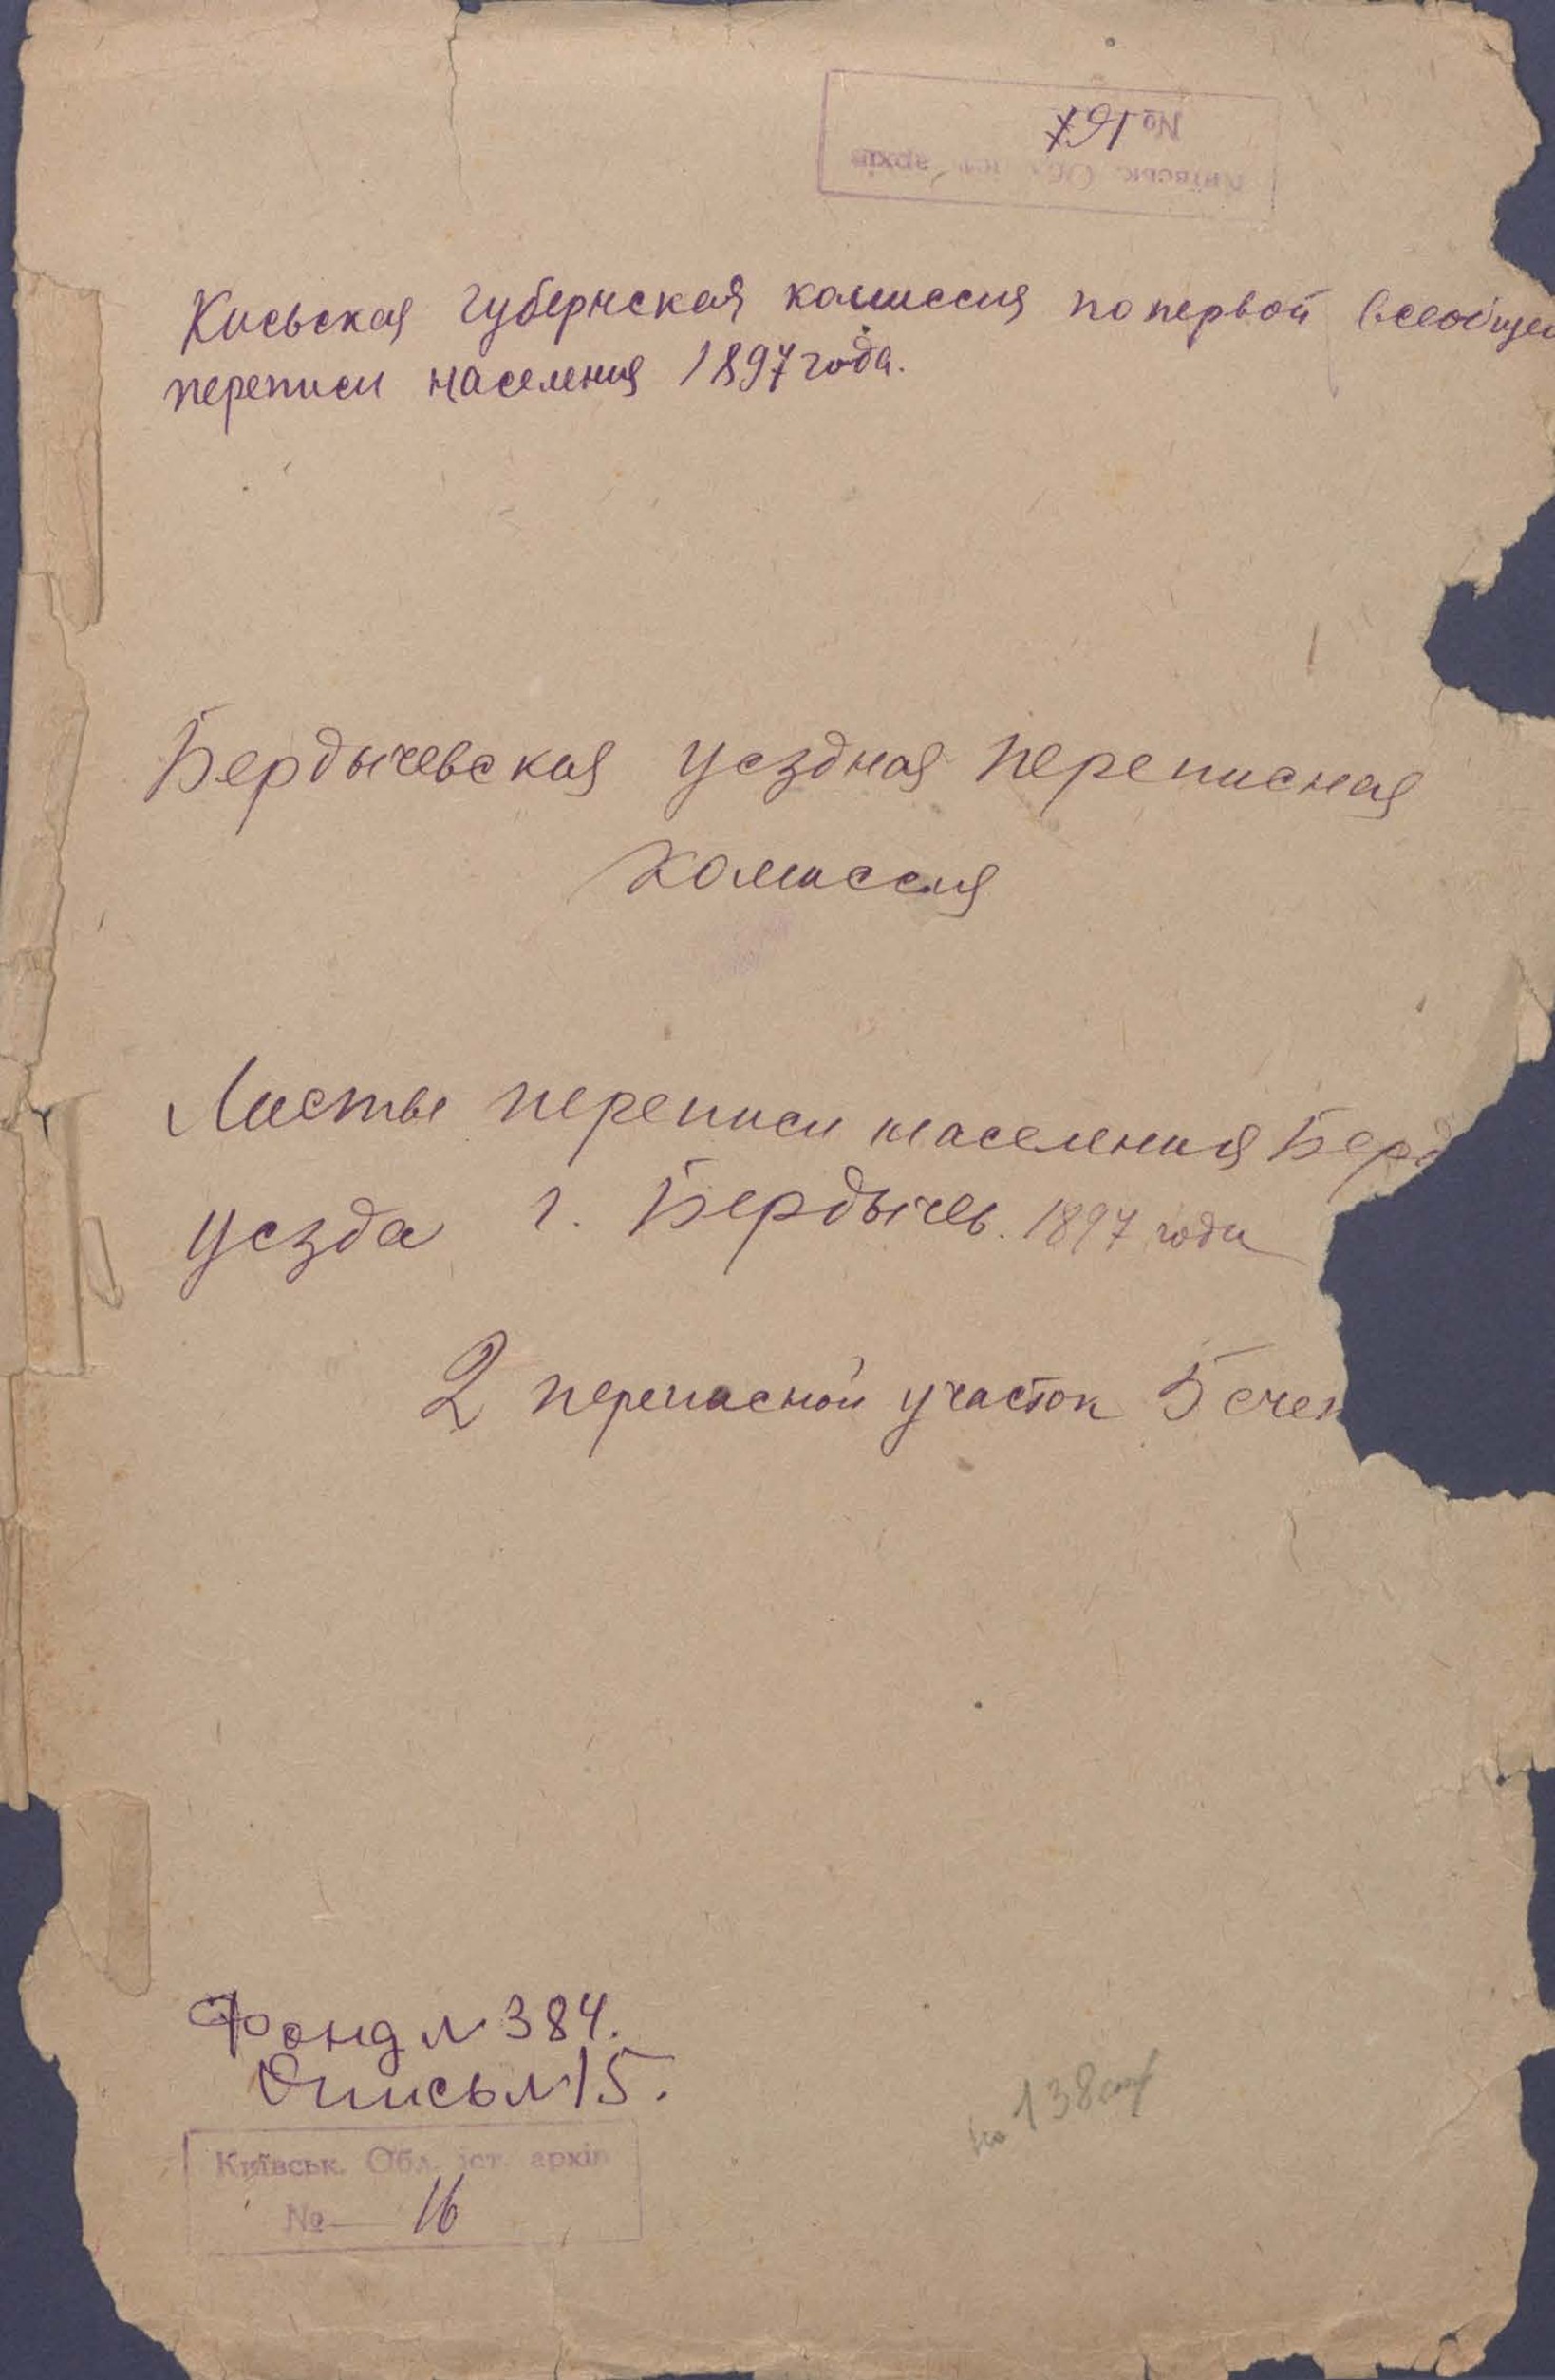 № 167
Київськ. Обл. іст. архів
Киевская губернская комиссия по первой всеобщей
переписи населения 1897 года.
Бердычевская уездная переписная
комиссия
Листы переписи населения Берд
уезда г. Бердычев. 1897 года
2 переписной участок 5 счет
Фонд № 384.
Опись № 15.
на 138
Київськ. Обл. іст. архів
№ 16